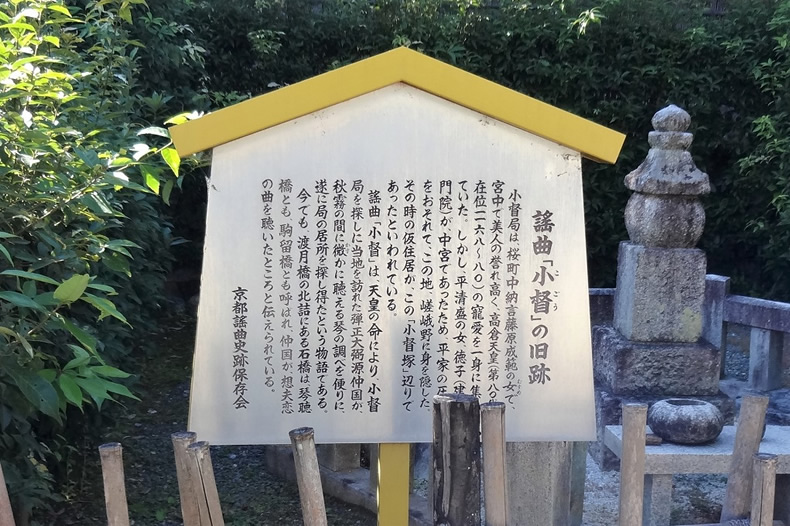 謡曲「小督」の旧跡
こごう
小督局は、桜町中納言藤原成範の女で、
むすめ
宮中で美人の誉れ高く、高倉天皇(第八〇
在位一一六八〜八〇)の寵愛を一身に集
ていた。しかし、平清盛の女、徳子(建
門院)が中宮であったため、平家の圧
をおそれて、この地、嵯峨野に身を隠した。
その時の仮住居が、この「小督塚」辺りで
あったといわれている。
謡曲「小督」は、天皇の命により、小督
局を探しに当地を訪れた弾正大弼源仲国が、
秋霧の間に微かに聴える琴の調べを便りに、
遂に局の居所を探し得たという物語である。
今でも、渡月橋の北詰にある石橋は、琴聴
橋とも、駒留橋とも呼ばれ、仲国が、想夫恋
の曲を聴いたところと伝えられている。
京都謡曲史跡保存会